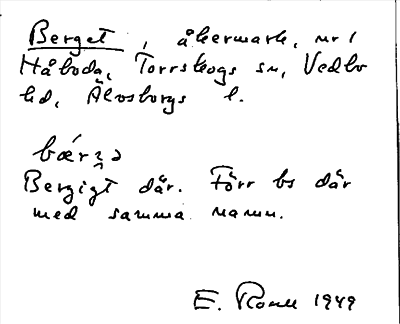 Berget, åkermark, nr 1
Håboda, Torrskogs sn, Vedbo
hd, Älvsborgs l.
bær̀ʒə
Bergigt där. Förr bs där
med samma namn.
E. 1949